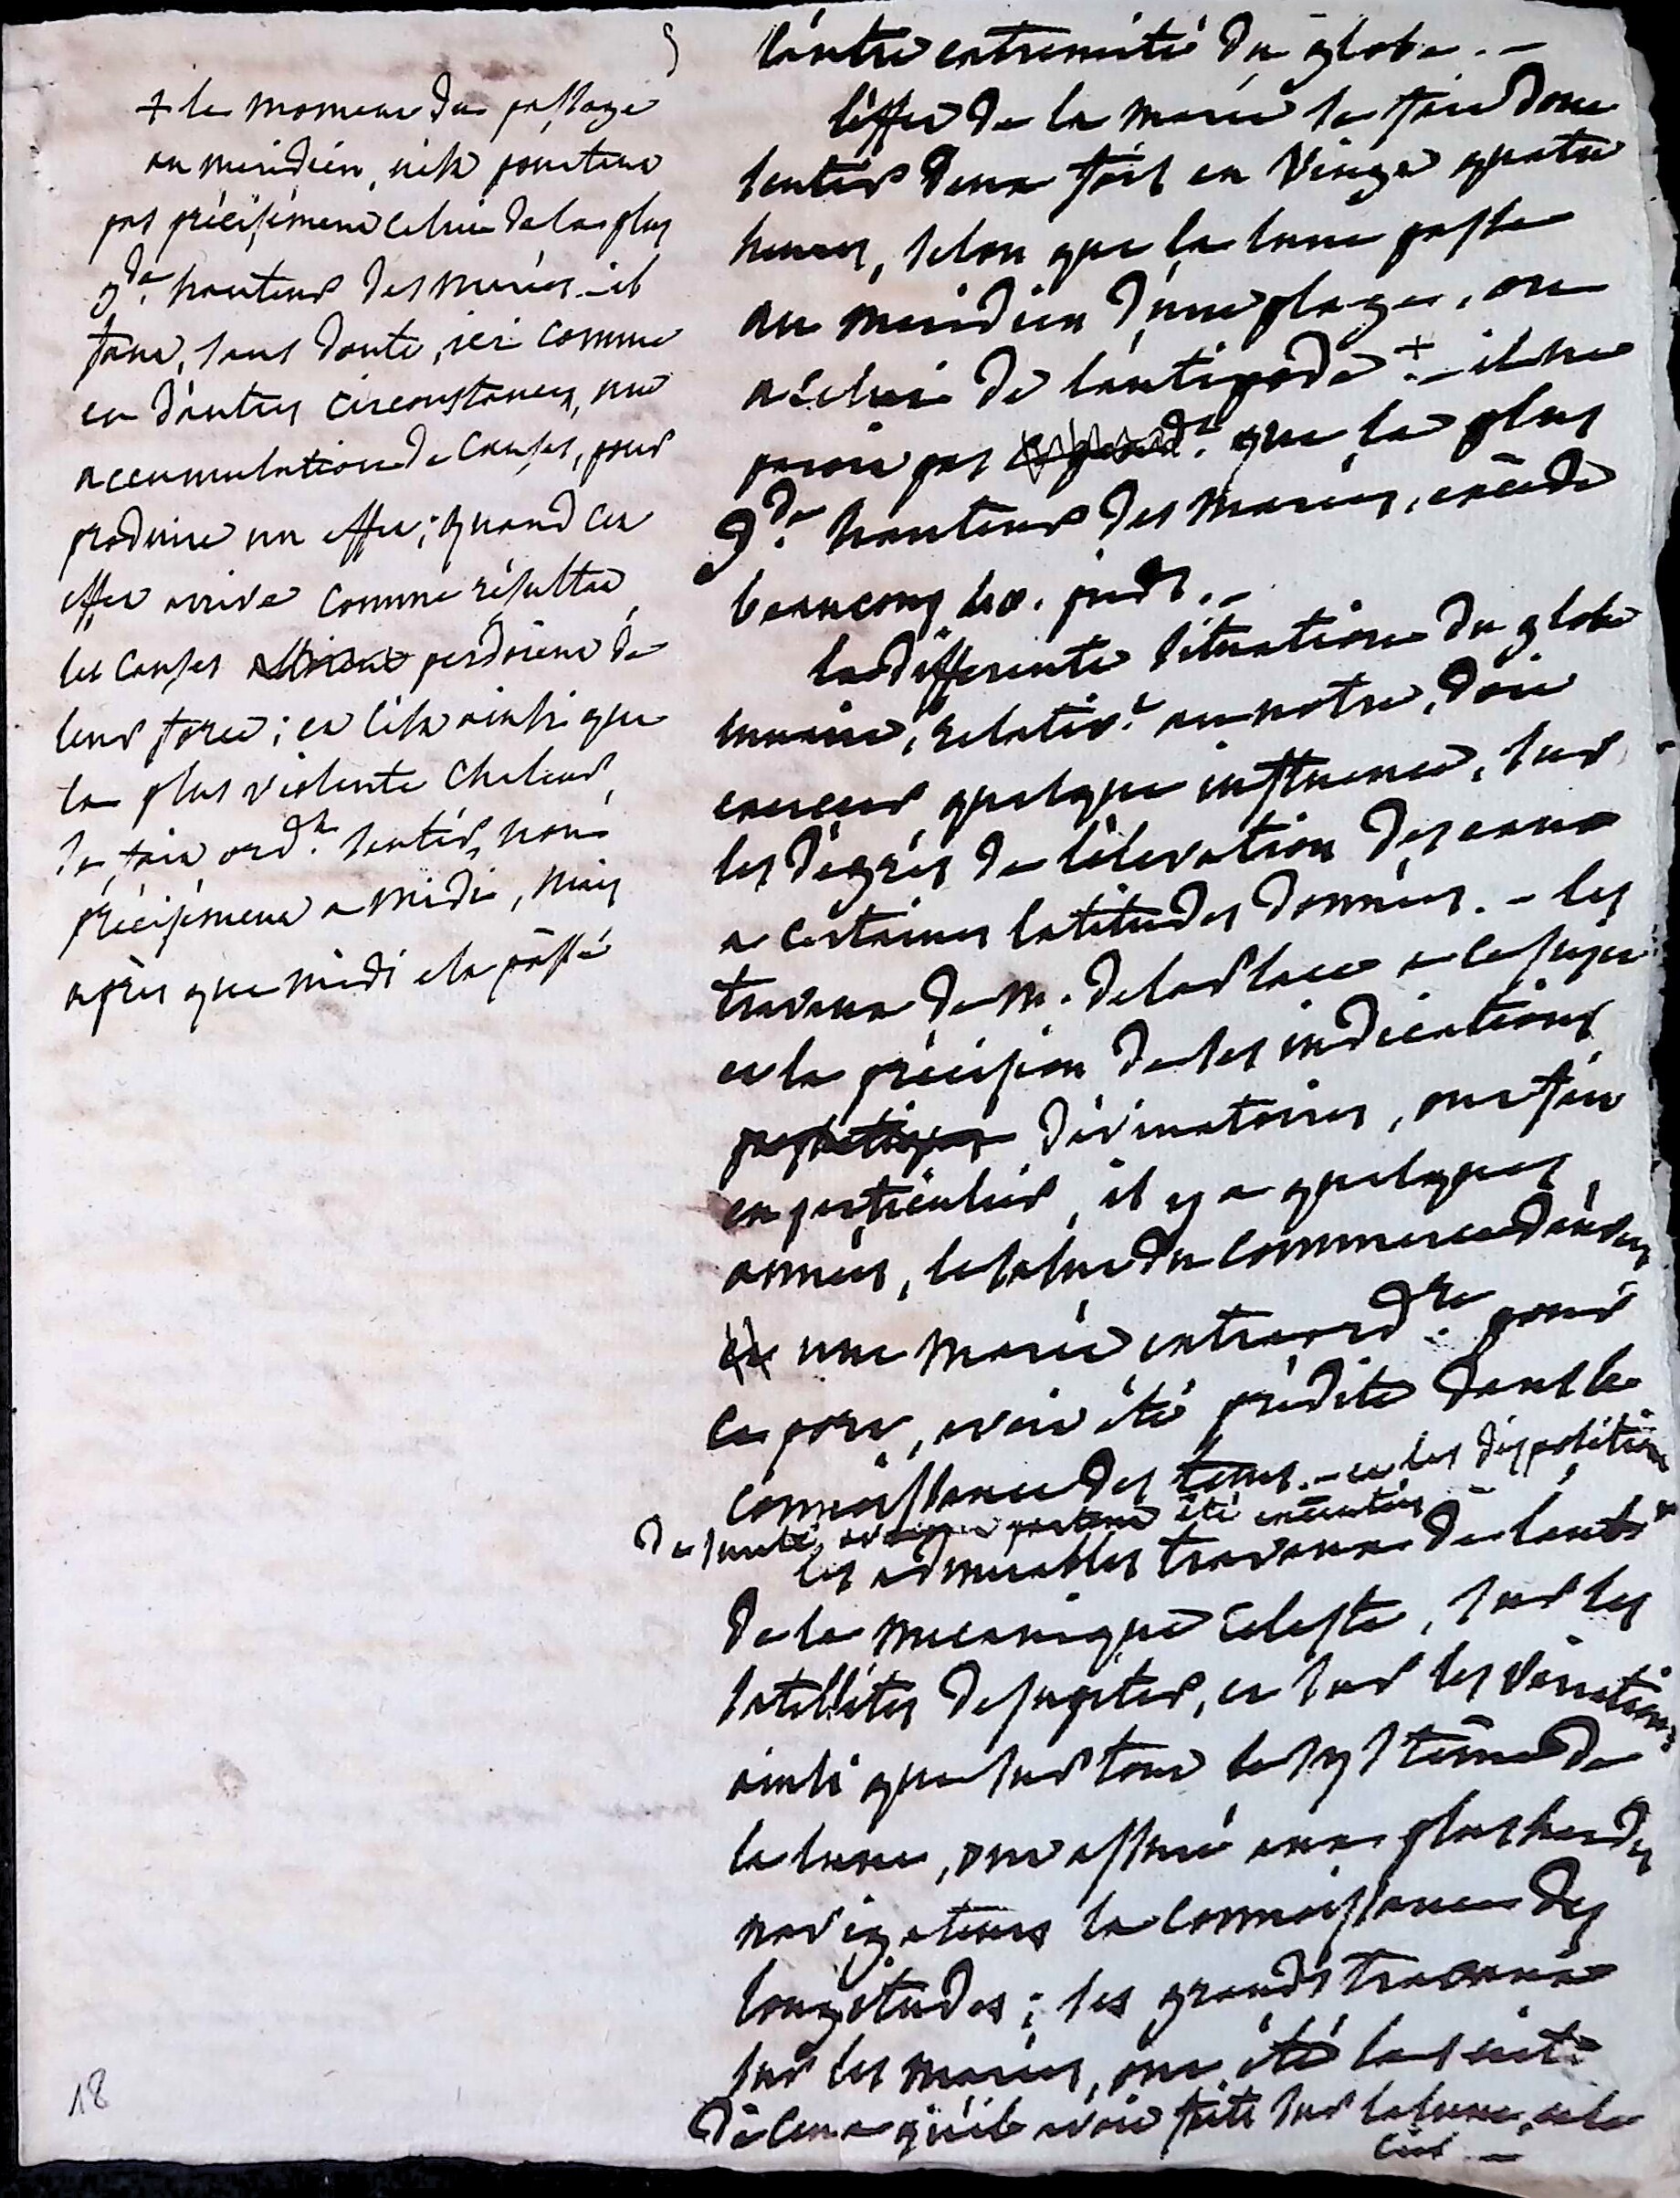 l'autre extremité du globe. –
l'effet de la marée se fait donc
sentir deux fois en vingt quatre
heures, selon que la lune passe
au meridien d'une plage, ou
a celui de l'antipode + – il ne
paroit pas que la plus
gde. hauteur des marées, excede
beaucoup pieds. –
la differente situation du globe
lunaire, relativt. au notre, doit
exercer quelque influence, sur
les dégrés de l'élevation des eaux
a certaines latitudes données. – les
travaux de M. de la Place a ce sujet
et la précision de ses indications
prophetiques divinatoires, ont fait
en particulier, il y a quelques
années, le salut du commerce d'anvers
une marée extraordre. pour
ce port, avoit été prédite dans la
connoissance des tems. – et les dispositions
de sureté, avoient partout été executées
les admirables travaux de l'autr
de la mecanique celeste, sur les
satellites de jupiter, et sur les variations
ainsi que sur tout le systême de
la lune, ont assuré aux plus hardis
navigateurs la connoissance des
longitudes; ses grands travaux
sur les marées, ont été la suite
de ceux qu'il avoit faits sur la lune, et le
ciel. –
+ le moment du passage
au meridien, n'est pourtant
pas précisément celui de la plus
gde. hauteur des marées – il
faut, sans doute, ici comme
en d'autres circonstances, une
accumulation de causes, pour
produire un effet; quand cet
effet arrive comme résultat,
les causes perdoient de
leur force; et c'est ainsi que
la plus violente chaleur,
se fait ordre. sentir, non
précisément a midi, mais
après que midi est passé
18